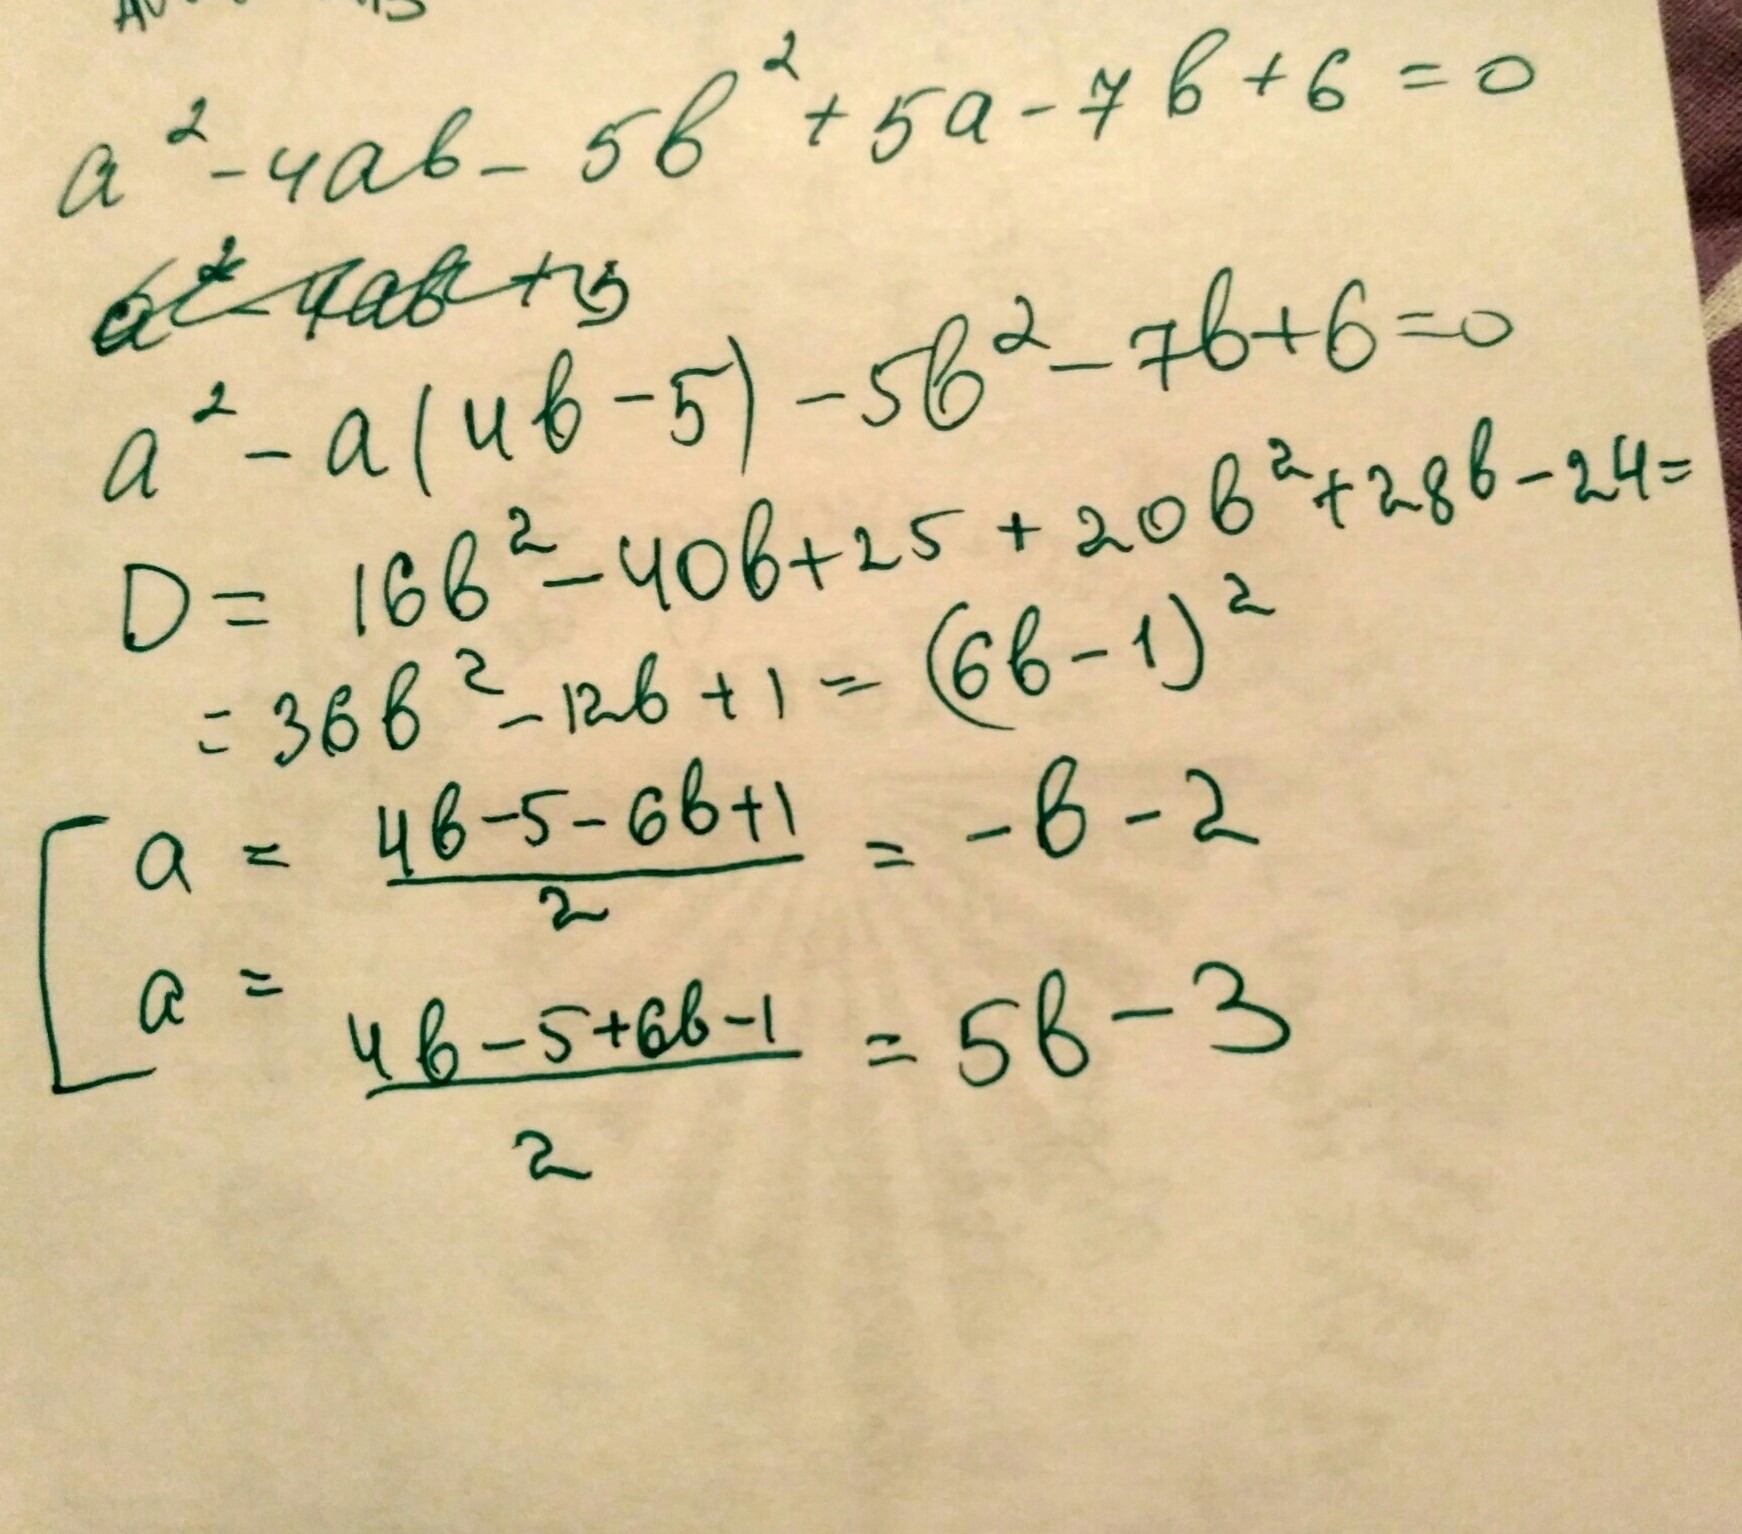 a² - 4ab - 5b² + 5a - 7b + 6 = 0
a² - 4ab + 5
a² - a(4b - 5) - 5b² - 7b + 6 = 0
D = 16b² - 40b + 25 + 20b² + 28b - 24 =
= 36b² - 12b + 1 = (6b - 1)²
a = (4b - 5 - 6b + 1)/2 = -b - 2
a = (4b - 5 + 6b - 1)/2 = 5b - 3